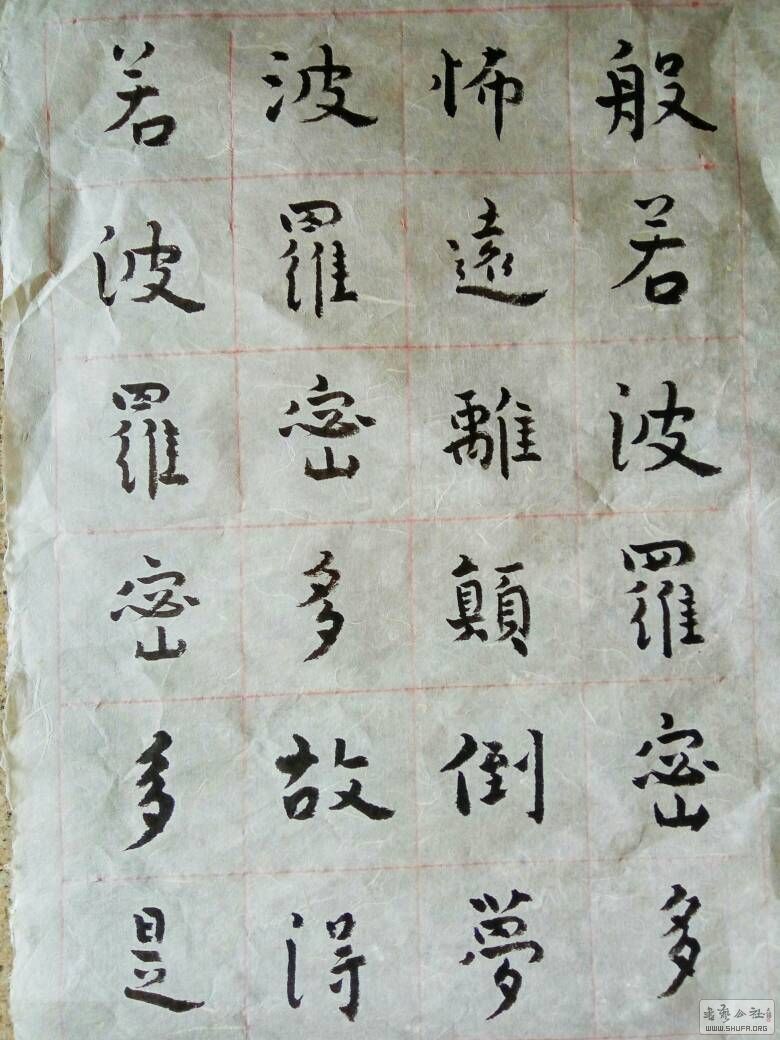 般若波羅密多
怖遠離顛倒夢
波羅密多故得
若波羅密多是
書藝公社
WWW.SHUFA.ORG